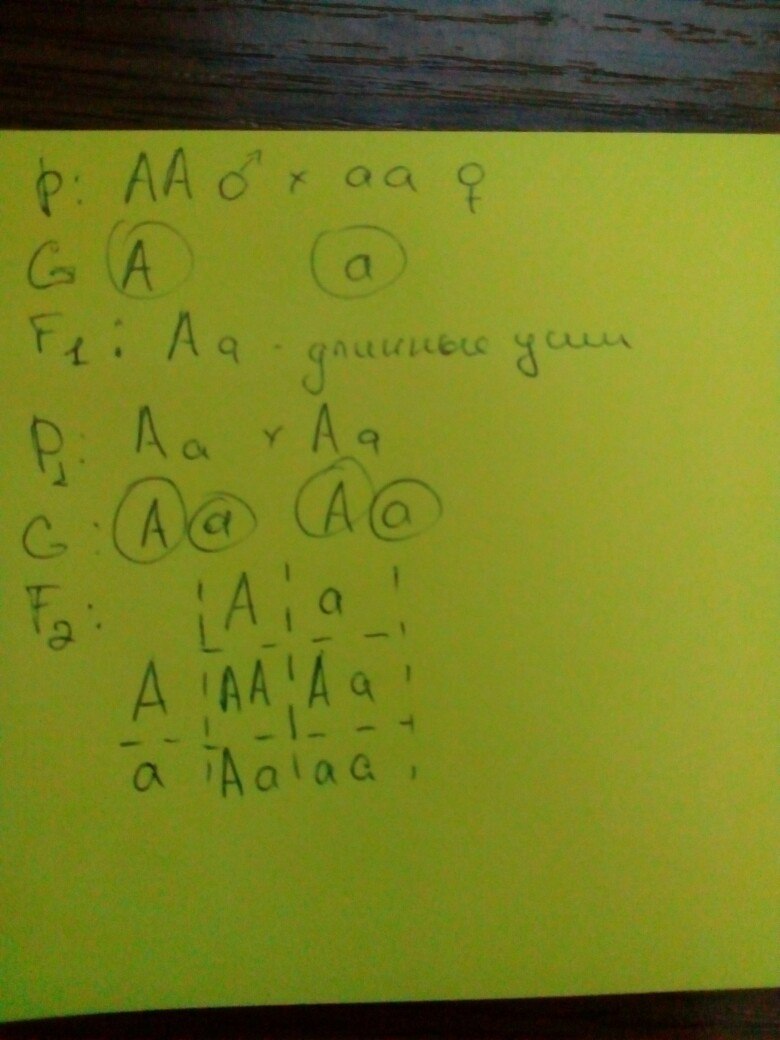 P: AA ♂ × aa ♀
G A a
F1: Aa - длинные уши
P1: Aa × Aa
G: A a A a
F2: A a
A AA Aa
a Aa aa